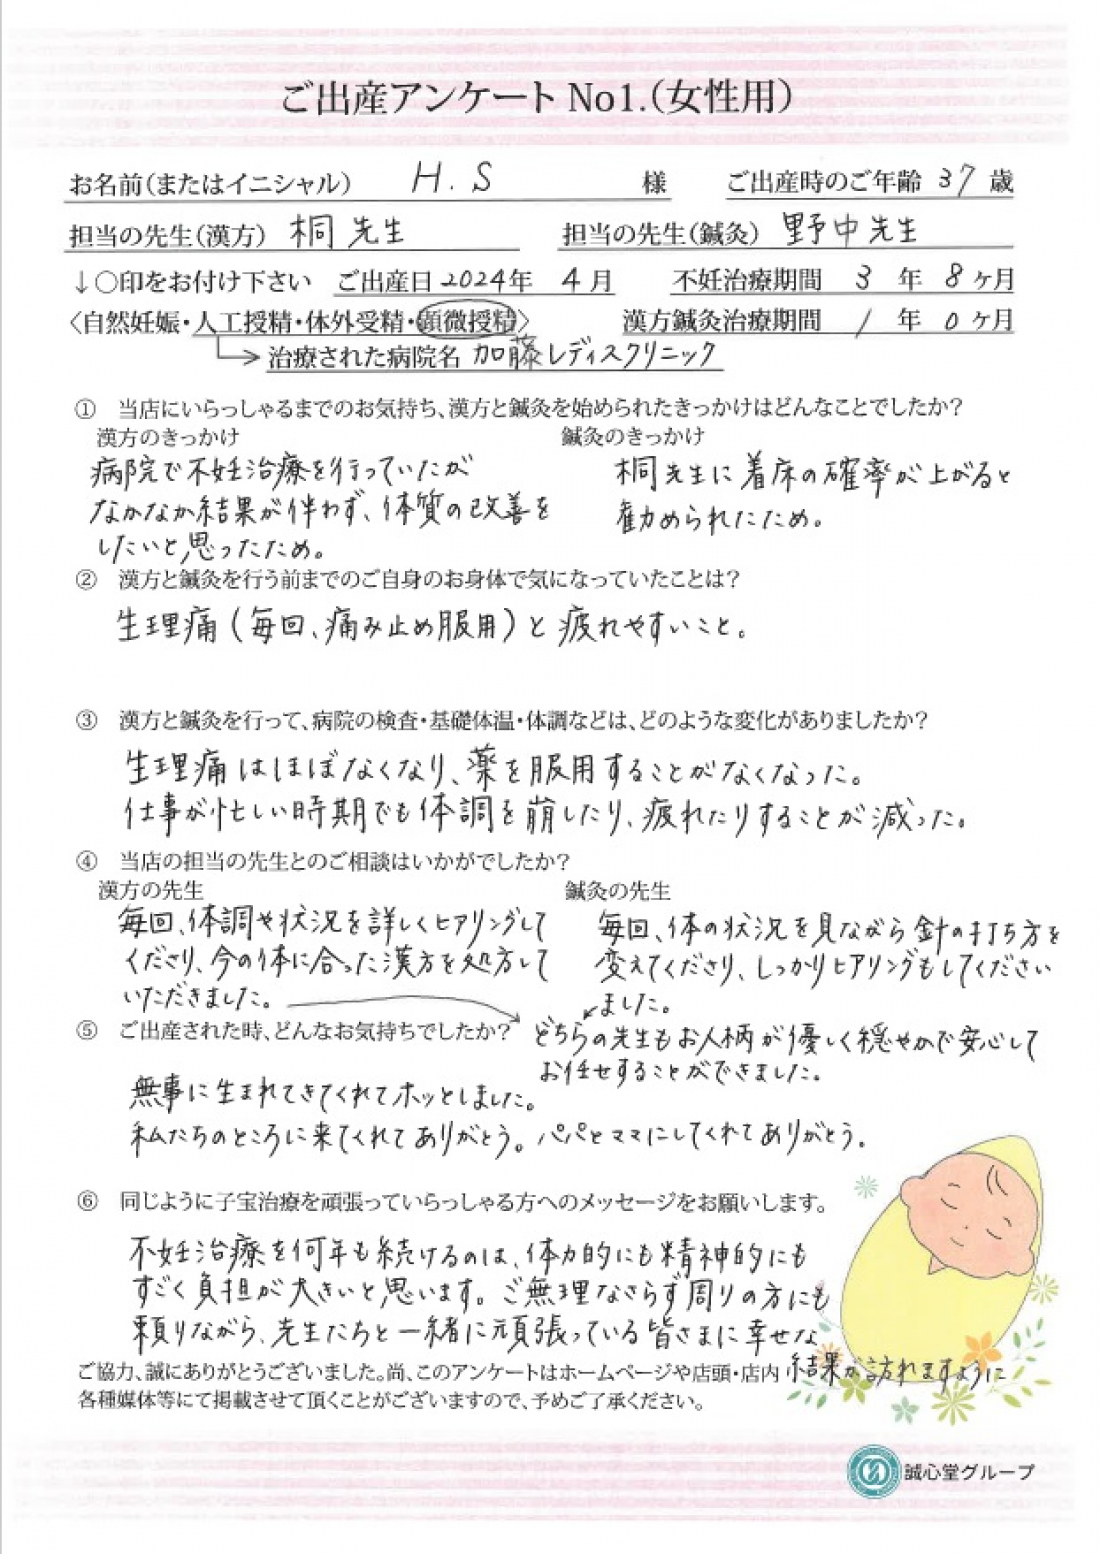 ご出産アンケート No1.(女性用)
お名前(またはイニシャル) H.S 様 ご出産時のご年齢 37 歳
担当の先生(漢方) 桐先生 担当の先生(鍼灸) 野中先生
↓○印をお付け下さい ご出産日 2024年 4月 不妊治療期間 3年 8ヶ月
〈自然妊娠・人工授精・体外受精・顕微授精〉 漢方鍼灸治療期間 1年 0ヶ月
→ 治療された病院名 加藤レディスクリニック
① 当店にいらっしゃるまでのお気持ち、漢方と鍼灸を始められたきっかけはどんなことでしたか?
漢方のきっかけ
病院で不妊治療を行っていたが
なかなか結果が伴わず、体質の改善を
したいと思ったため。
鍼灸のきっかけ
桐先生に着床の確率が上がると
勧められたため。
② 漢方と鍼灸を行う前までのご自身のお身体で気になっていたことは?
生理痛(毎回、痛み止め服用)と疲れやすいこと。
③ 漢方と鍼灸を行って、病院の検査・基礎体温・体調などは、どのような変化がありましたか?
生理痛はほぼなくなり、薬を服用することがなくなった。
仕事が忙しい時期でも体調を崩したり、疲れたりすることが減った。
④ 当店の担当の先生とのご相談はいかがでしたか?
漢方の先生
毎回、体調や状況を詳しくヒアリングして
くださり、今の体に合った漢方を処方して
いただきました。
鍼灸の先生
毎回、体の状況を見ながら針の打ち方を
変えてくださり、しっかりヒアリングもしてください
ました。
どちらの先生もお人柄が優しく穏やかで安心して
お任せすることができました。
⑤ ご出産された時、どんなお気持ちでしたか?
無事に生まれてきてくれてホッとしました。
私たちのところに来てくれてありがとう。パパとママにしてくれてありがとう。
⑥ 同じように子宝治療を頑張っていらっしゃる方へのメッセージをお願いします。
不妊治療を何年も続けるのは、体力的にも精神的にも
すごく負担が大きいと思います。ご無理なさらず周りの方にも
頼りながら、先生たちと一緒に頑張っている皆さまに幸せな
結果が訪れますように
ご協力、誠にありがとうございました。尚、このアンケートはホームページや店頭・店内
各種媒体等にて掲載させて頂くことがございますので、予めご了承ください。
誠心堂グループ